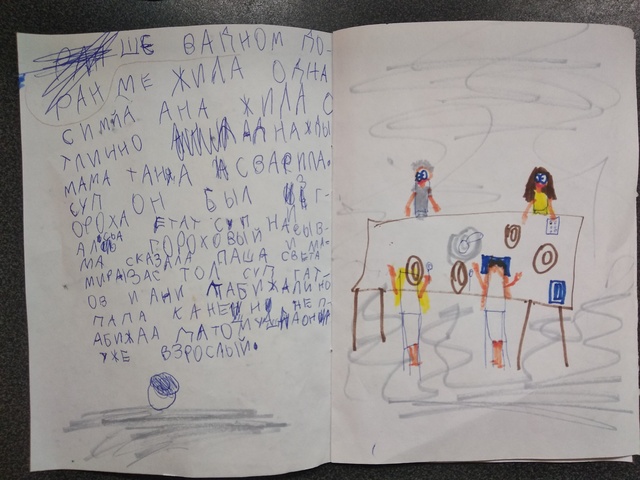 ШЕ ВАДНОМ ДО-
РАН МЕ ЖИЛА ОДНА
СИМЙА АНА ЖИЛА О
ТЛИЧНО АДНАЖДЫ
МАМА ТАНЯ СВАРИЛА.
СУП ОН БЫЛ ИЗ Г-
ОРОХА ЕТАТ СУП НАЗЫВ-
АЛСЬА ГОРОХОВЫЙ И МА-
МА СКАЗАЛА ПАША СВЕТА
МИРА ЗАС ТОЛ СУП ГАТ-
ОВ И АНИ ПАБИЖАЛИ НО
ПАПА КАНЕШНО НЕ П-
АБИЖАЛ ПАТОМУШ ОН
УЖЕ ВЗРОСЛЫЙ.